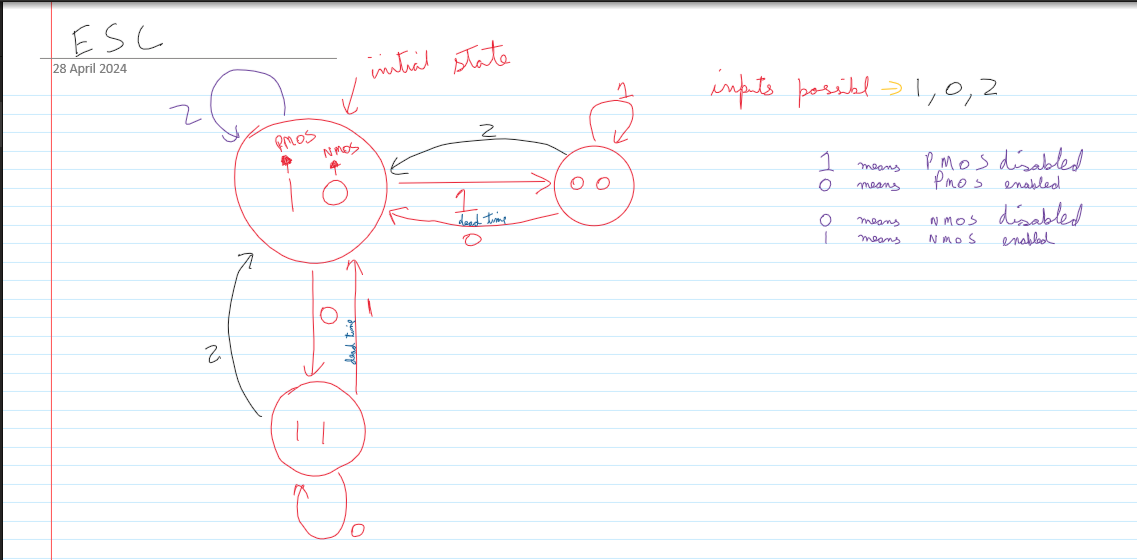 ESC
28 April 2024
initial state
inputs possibl → 1, 0, 2
2
PMOS
NMOS
1 0
2
1
dead time
0
1
0 0
1 means PMOS disabled
0 means PMOS enabled
0 means NMOS disabled
1 means NMOS enabled
2
0
dead time
1
1 1
0